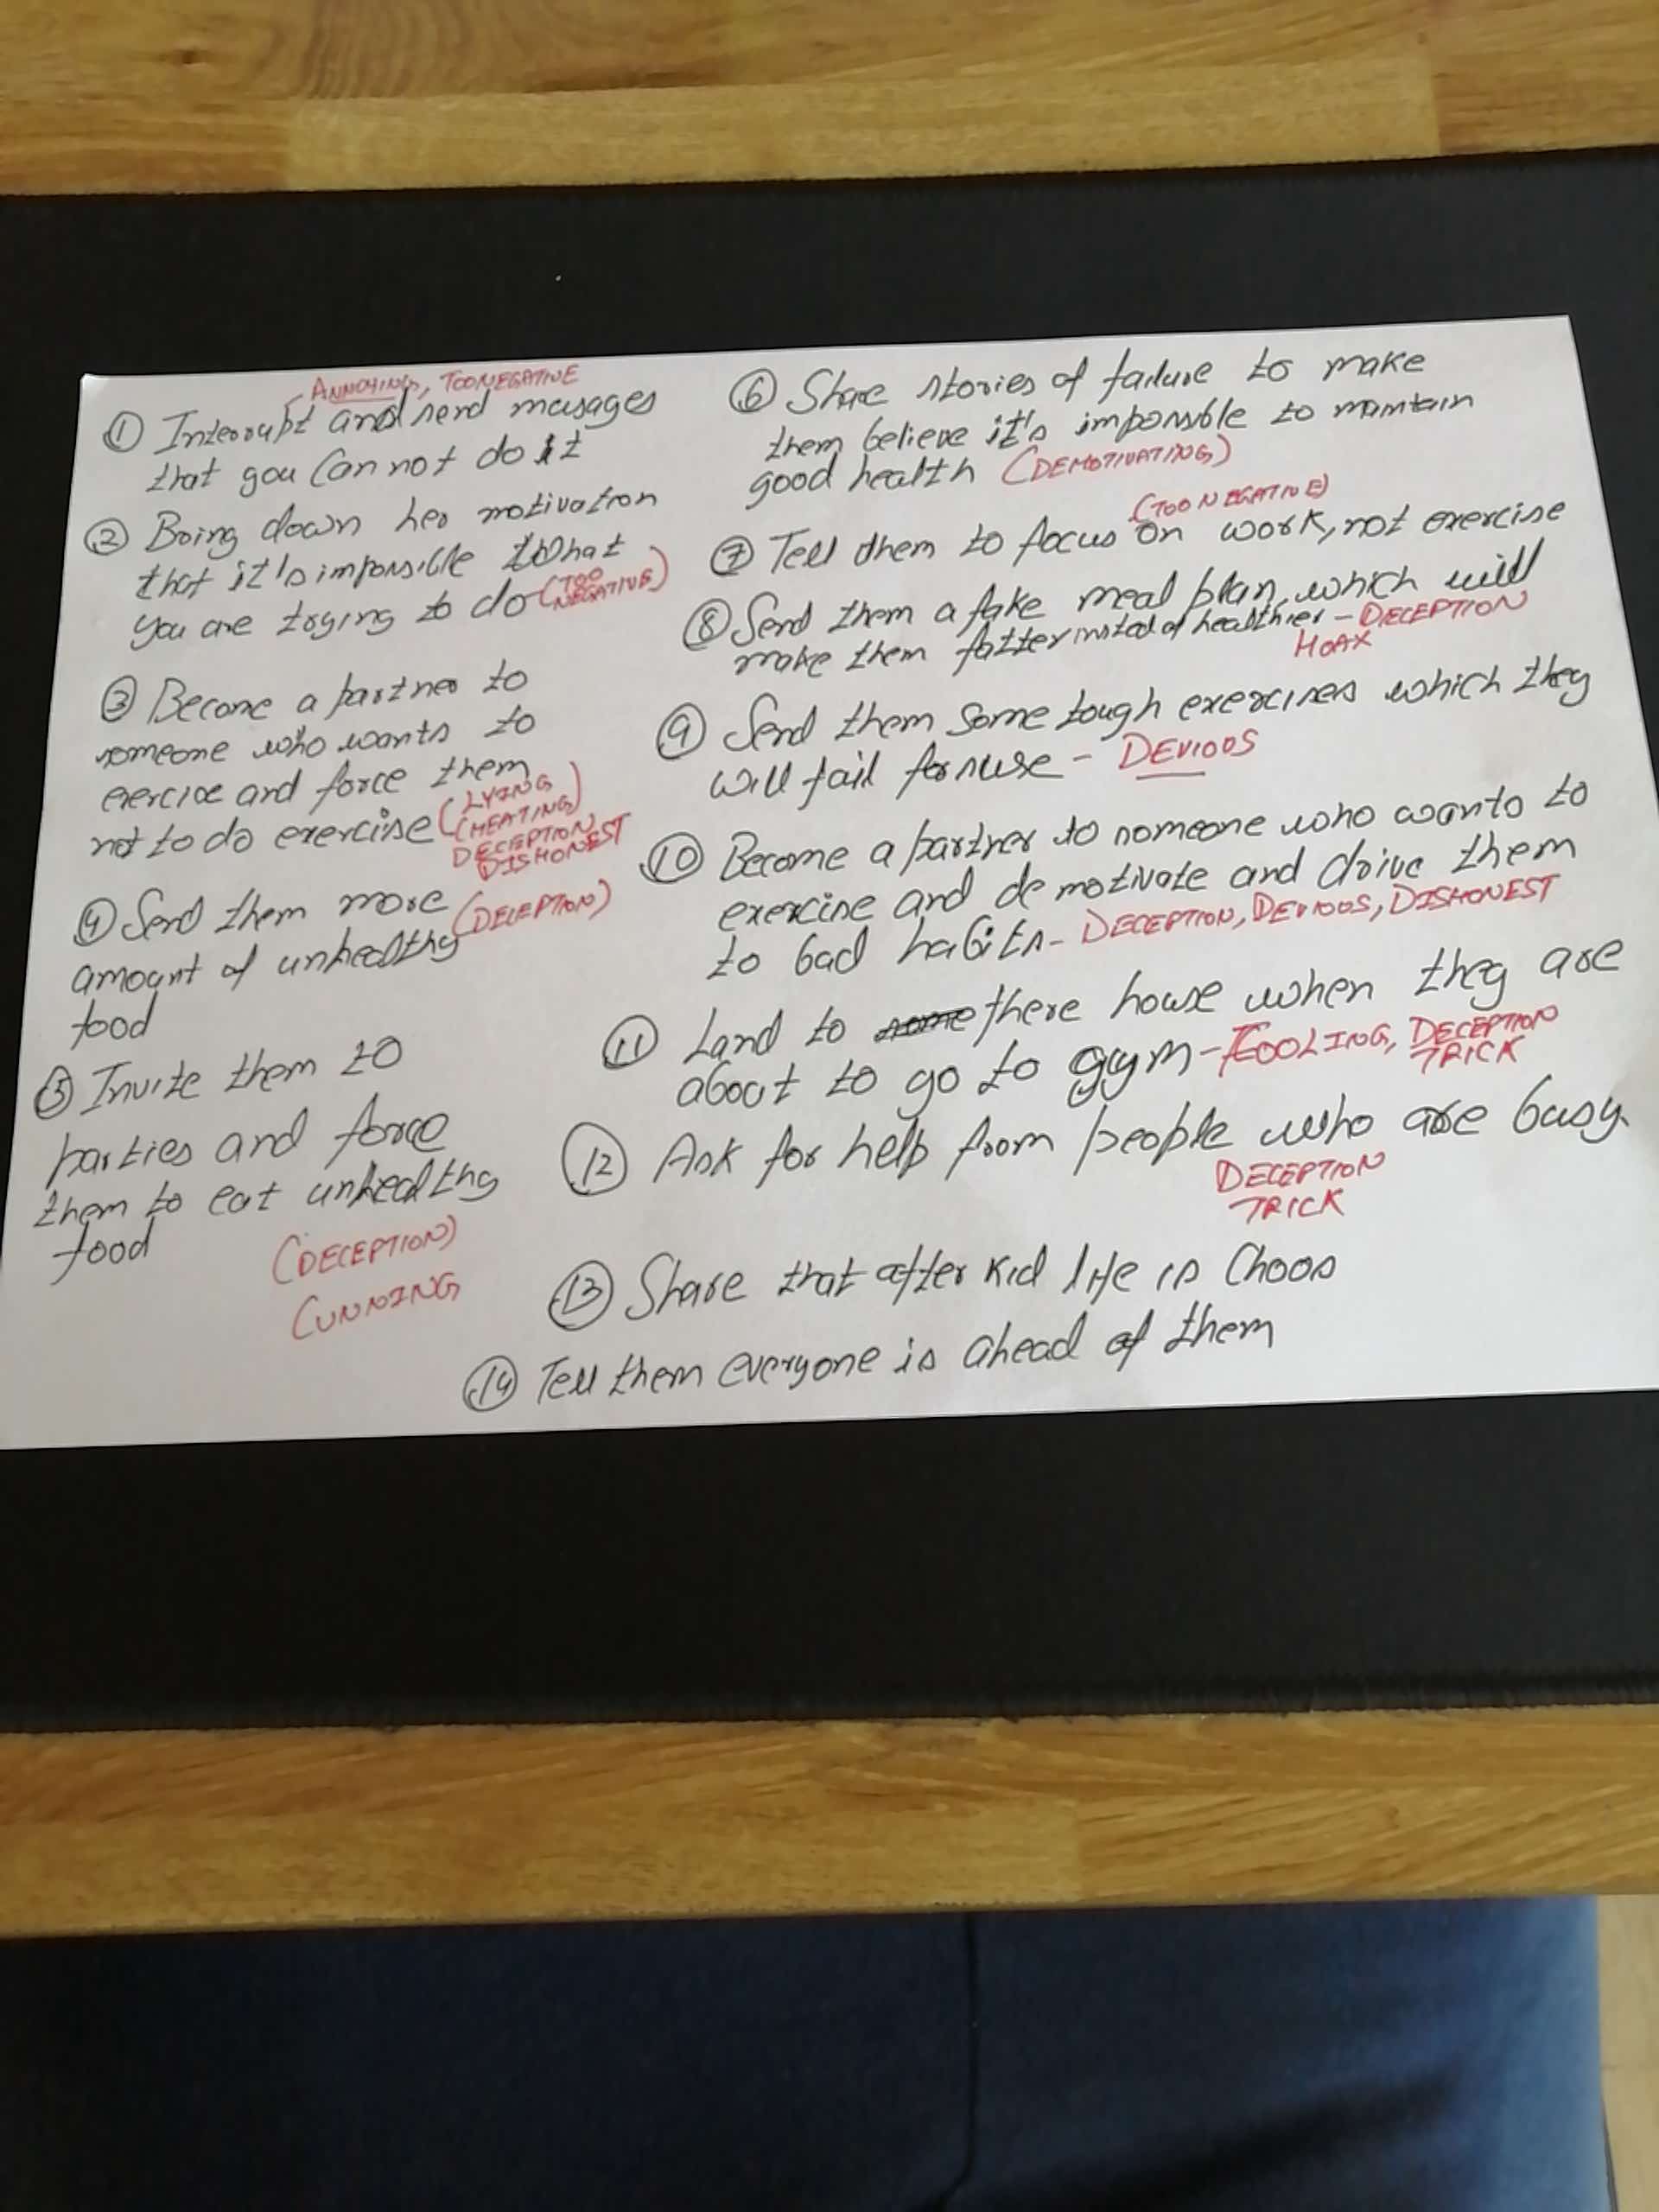 ANNOYING, TOO NEGATIVE
① Interrupt and send messages
that you can not do it
② Bring down her motivation
that it's impossible what
you are trying to do (TOO
NEGATIVE)
③ Become a partner to
someone who wants to
exercise and force them
not to do exercise (LYING
CHEATING)
DECEPTION
DISHONEST
④ Send them more (DECEPTION)
amount of unhealthy
food
⑤ Invite them to
parties and force
them to eat unhealthy
food
(DECEPTION)
CUNNING
⑥ Share stories of failure to make
them believe it's impossible to maintain
good health (DEMOTIVATING)
(TOO NEGATIVE)
⑦ Tell them to focus on work, not exercise
⑧ Send them a fake meal plan, which will
make them fatter insted of healthier - DECEPTION
HOAX
⑨ Send them some tough exercises which they
will fail for - DEVIOUS
⑩ Become a partner to someone who wants to
exercise and demotivate and drive them
to bad habits - DECEPTION, DEVIOUS, DISHONEST
⑪ Land to there house when they are
about to go to gym - FOOLING, DECEPTION
TRICK
⑫ Ask for help from people who are busy.
DECEPTION
TRICK
⑬ Share that after kid life is Choos
⑭ Tell them everyone is ahead of them